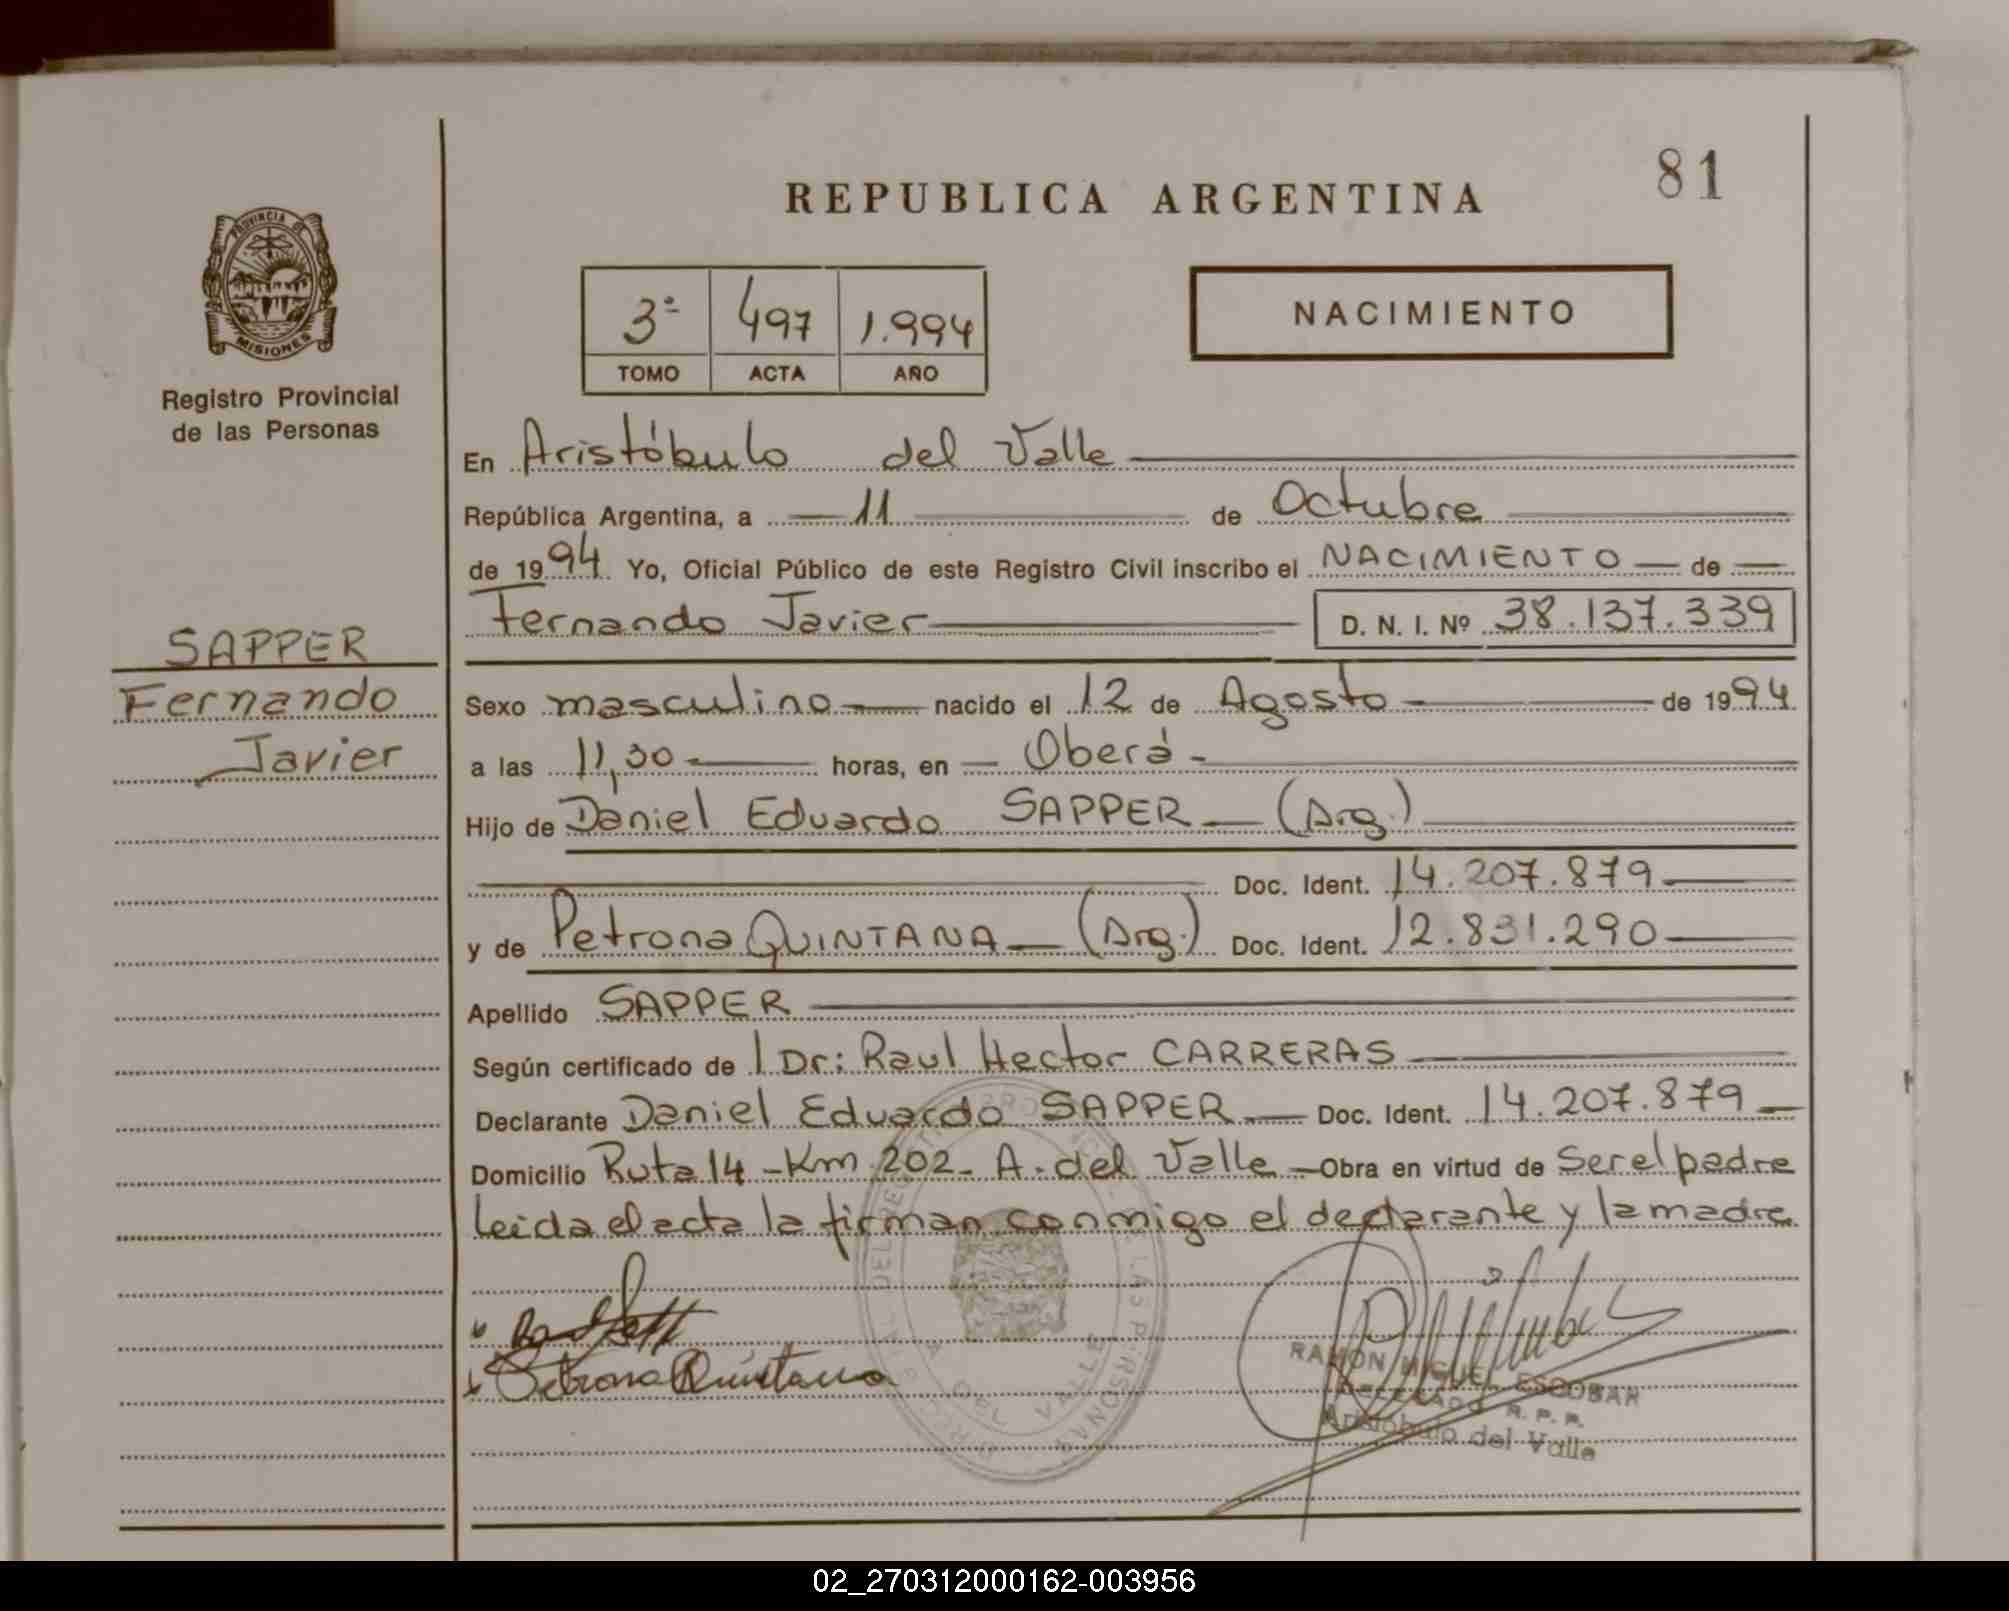 81
REPUBLICA ARGENTINA
PROVINCIA DE
MISIONES
Registro Provincial
de las Personas
3ª 497 1.994
TOMO ACTA AÑO
NACIMIENTO
En Aristóbulo del Valle
República Argentina, a 11 de Octubre
de 1994. Yo, Oficial Público de este Registro Civil inscribo el NACIMIENTO de
Fernando Javier D. N. I. Nº 38.137.339
SAPPER
Fernando
Javier
Sexo masculino nacido el 12 de Agosto de 1994
a las 11,30 horas, en Oberá
Hijo de Daniel Eduardo SAPPER (Arg.)
Doc. Ident. 14.207.879
y de Petrona QUINTANA (Arg.) Doc. Ident. 12.831.290
Apellido SAPPER
Según certificado de Dr: Raul Hector CARRERAS
Declarante Daniel Eduardo SAPPER Doc. Ident. 14.207.879
Domicilio Ruta 14 - Km 202 - A. del Valle Obra en virtud de Ser el padre
Leida el acta la firman conmigo el declarante y la madre
Petrona Quintana
A. DEL VALLE
RAMON MIGUEL ESCOBAR
DELEGADO R. P. P.
Aristobulo del Valle
02_270312000162-003956